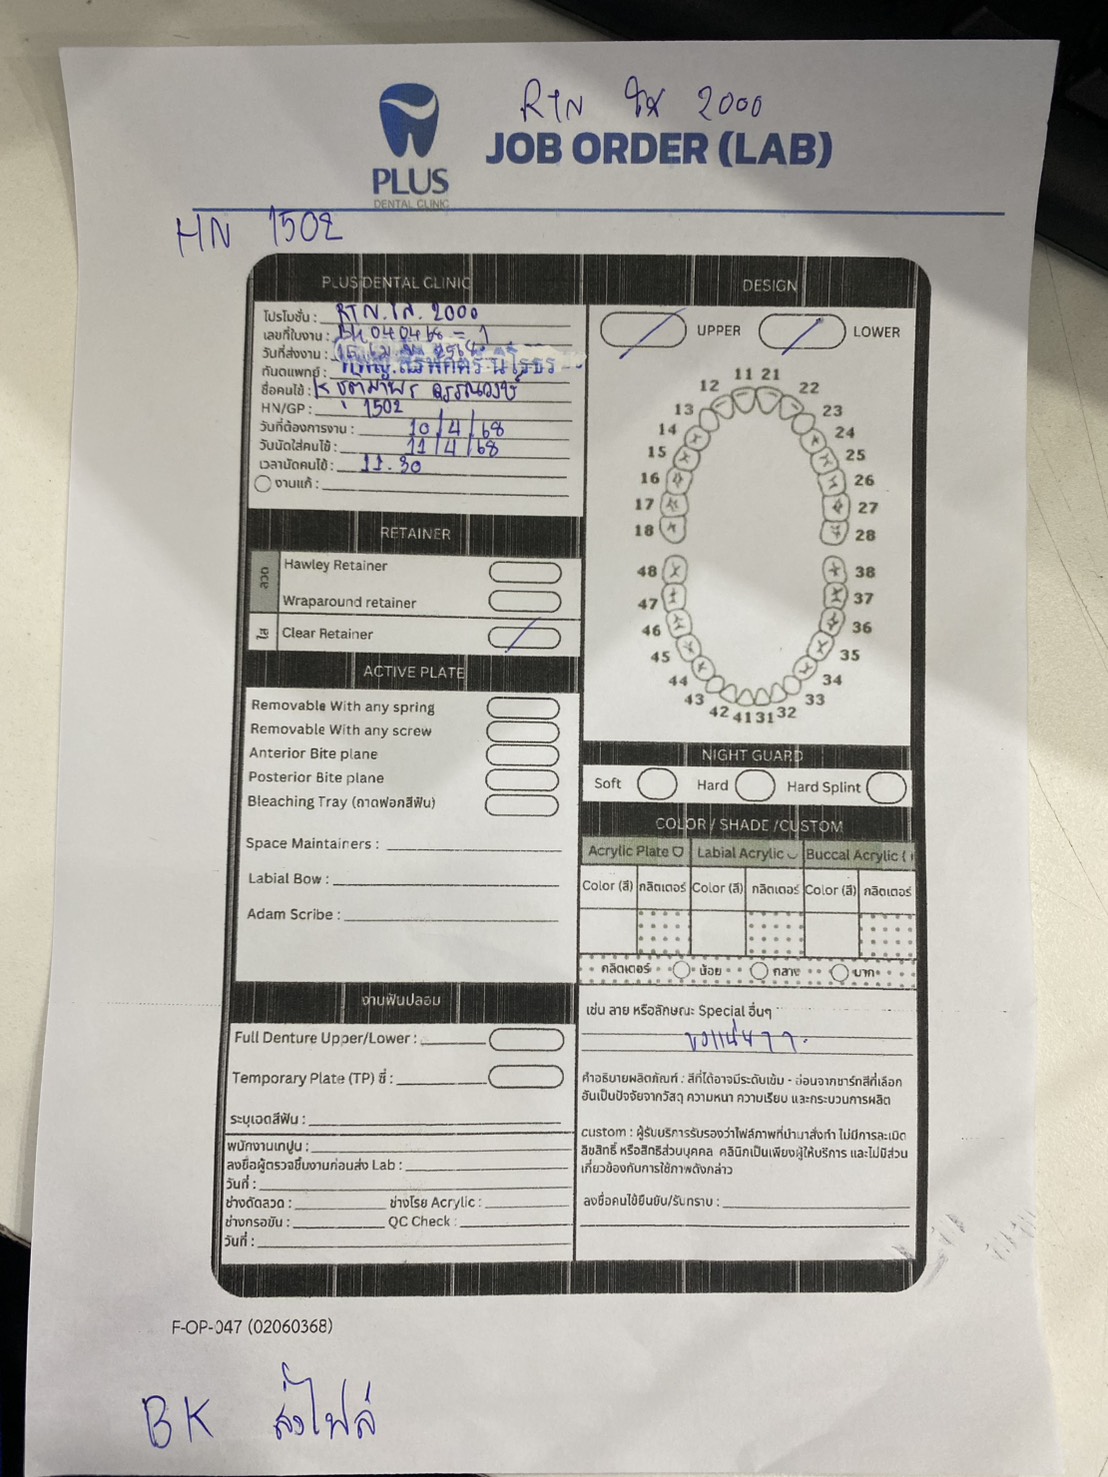 RTN ใส 2000
PLUS
DENTAL CLINIC
JOB ORDER (LAB)
HN 1502
PLUS DENTAL CLINIC
โปรโมชั่น : RTN.ใส. 2000
เลขที่ใบงาน : BK 040468 - 1
วันที่ส่งงาน :
ทันตแพทย์ :
ชื่อคนไข้ : K ชุติมาพร
HN/GP : 1502
วันที่ต้องการงาน : 10/4/68
วันนัดใส่คนไข้ : 11/4/68
เวลานัดคนไข้ : 11.30
งานแก้ :
RETAINER
ลวด
Hawley Retainer
Wraparound retainer
ใส
Clear Retainer
ACTIVE PLATE
Removable With any spring
Removable With any screw
Anterior Bite plane
Posterior Bite plane
Bleaching Tray (ถาดฟอกสีฟัน)
Space Maintainers :
Labial Bow :
Adam Scribe :
งานฟันปลอม
Full Denture Upper/Lower :
Temporary Plate (TP) ซี่ :
ระบุเฉดสีฟัน :
พนักงานเทปูน :
ลงชื่อผู้ตรวจชิ้นงานก่อนส่ง Lab :
วันที่ :
ช่างดัดลวด : ช่างโรย Acrylic :
ช่างกรอขัด : QC Check :
วันที่ :
DESIGN
UPPER LOWER
11 21
12 22
13 23
14 24
15 25
16 26
17 27
18 28
48 38
47 37
46 36
45 35
44 34
43 33
42 41 31 32
NIGHT GUARD
Soft Hard Hard Splint
COLOR / SHADE /CUSTOM
Acrylic Plate Labial Acrylic Buccal Acrylic
Color (สี) กลิตเตอร์ Color (สี) กลิตเตอร์ Color (สี) กลิตเตอร์
กลิตเตอร์ น้อย กลาง มาก
เช่น ลาย หรือลักษณะ Special อื่นๆ
ขอแน่นๆๆ.
คำอธิบายผลิตภัณฑ์ : สีที่ได้อาจมีระดับเข้ม - อ่อนจากชาร์ทสีที่เลือก
อันเป็นปัจจัยจากวัสดุ ความหนา ความเรียบ และกระบวนการผลิต
custom : ผู้รับบริการรับรองว่าไฟล์ภาพที่นำมาสั่งทำ ไม่มีการละเมิด
ลิขสิทธิ์ หรือสิทธิส่วนบุคคล คลินิกเป็นเพียงผู้ให้บริการ และไม่มีส่วน
เกี่ยวข้องกับการใช้ภาพดังกล่าว
ลงชื่อคนไข้ยืนยัน/รับทราบ :
F-OP-047 (02060368)
BK ส่งไฟล์